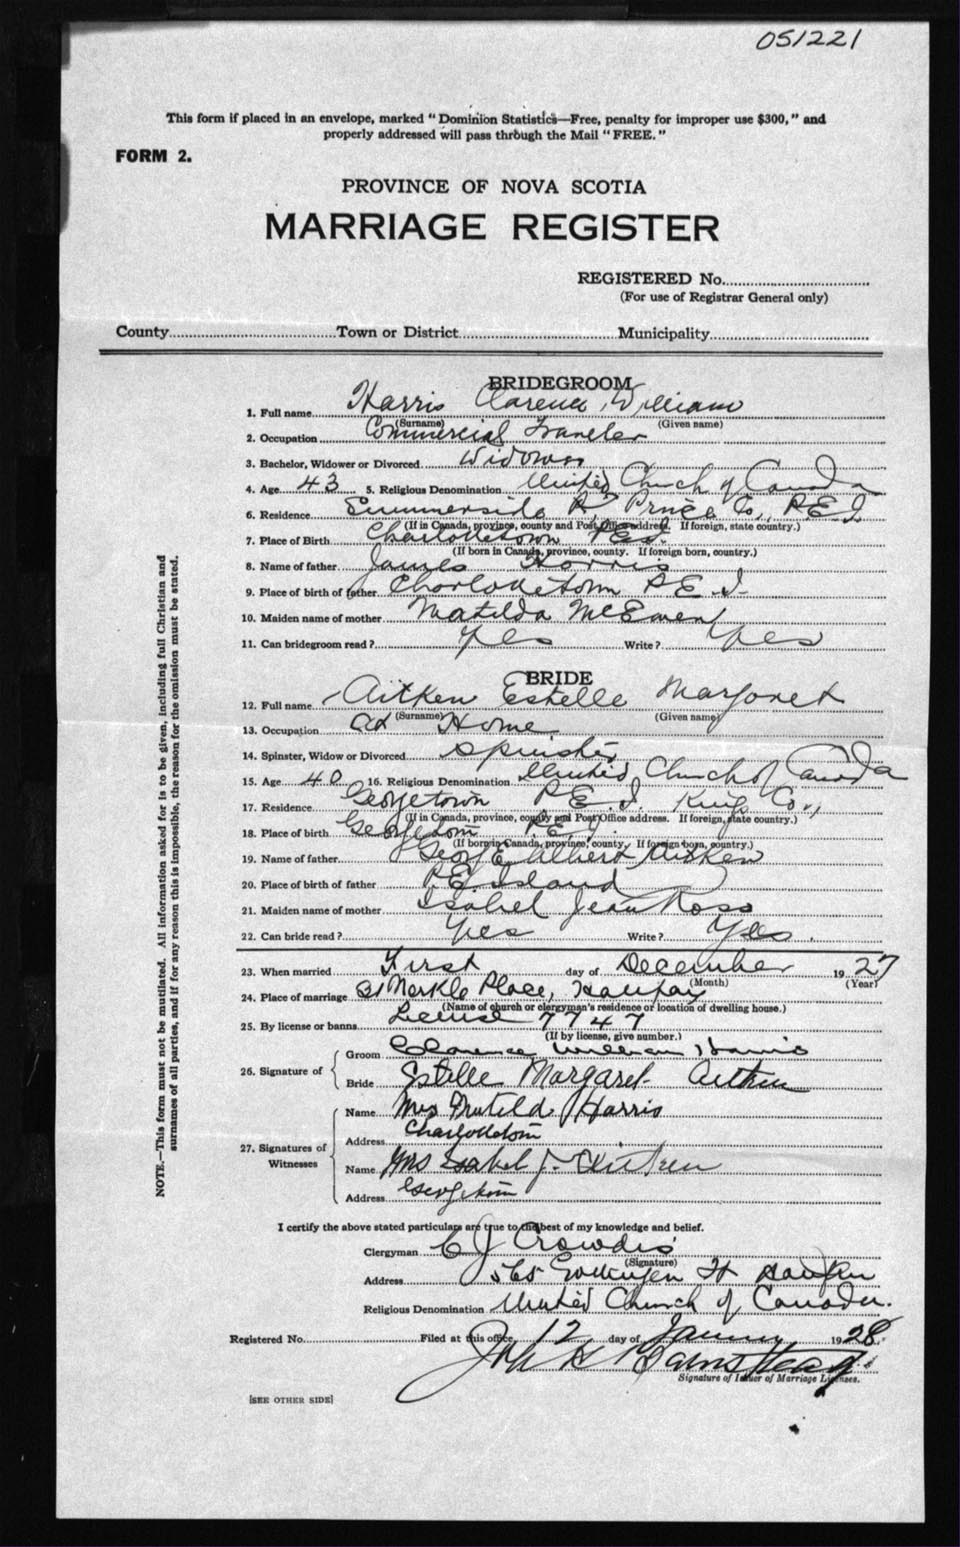 051221
This form if placed in an envelope, marked "Dominion Statistics—Free, penalty for improper use $300," and
properly addressed will pass through the Mail "FREE."
FORM 2.
PROVINCE OF NOVA SCOTIA
MARRIAGE REGISTER
REGISTERED No.
(For use of Registrar General only)
County Town or District Municipality
BRIDEGROOM
1. Full name Harris Clarence William
(Surname) (Given name)
2. Occupation Commercial Traveler
3. Bachelor, Widower or Divorced Widower
4. Age 43 5. Religious Denomination United Church of Canada
6. Residence Summerside Prince Co., P.E.I.
(If in Canada, province, county and Post Office address. If foreign, state country.)
7. Place of Birth Charlottetown P.E.I.
(If born in Canada, province, county. If foreign born, country.)
8. Name of father James Harris
9. Place of birth of father Charlottetown P.E.I.
10. Maiden name of mother Matilda McEwen
11. Can bridegroom read? Yes Write? Yes
BRIDE
12. Full name Aitken Estelle Margaret
(Surname) (Given name)
13. Occupation At Home
14. Spinster, Widow or Divorced Spinster
15. Age 40 16. Religious Denomination United Church of Canada
17. Residence Georgetown P.E.I. Kings Co.,
(If in Canada, province, county and Post Office address. If foreign, state country.)
18. Place of birth Georgetown P.E.I.
(If born in Canada, province, county. If foreign born, country.)
19. Name of father George Albert Aitken
20. Place of birth of father P.E. Island
21. Maiden name of mother Isabel Jean Ross
22. Can bride read? Yes Write? Yes.
23. When married First day of December 1927
(Month) (Year)
24. Place of marriage 31 Merkle Place, Halifax
(Name of church or clergyman's residence or location of dwelling house.)
25. By license or banns License 7747
(If by license, give number.)
26. Signature of
Groom Clarence William Harris
Bride Estelle Margaret Aitken
27. Signatures of
Witnesses
Name Mrs Matilda Harris
Address Charlottetown
Name Mrs Isabel J. Aitken
Address Georgetown
I certify the above stated particulars are true to the best of my knowledge and belief.
Clergyman C J Crowdis
(Signature)
Address 565 Gottingen St Halifax
Religious Denomination United Church of Canada.
Registered No. Filed at this office 12 day of January 1928
Signature of Issuer of Marriage Licenses.
[SEE OTHER SIDE]
NOTE.—This form must not be mutilated. All information asked for is to be given, including full Christian and
surnames of all parties, and if for any reason this is impossible, the reason for the omission must be stated.